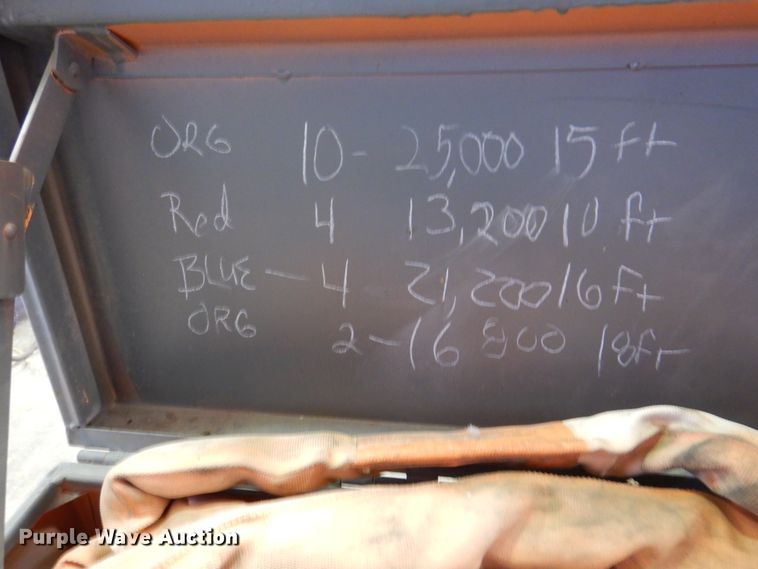 ORG 10 - 25,000 15 ft
Red 4 13,200 10 ft
BLUE - 4 21,200 16 Ft
ORG 2 - 16 800 18 Ft
Purple Wave Auction